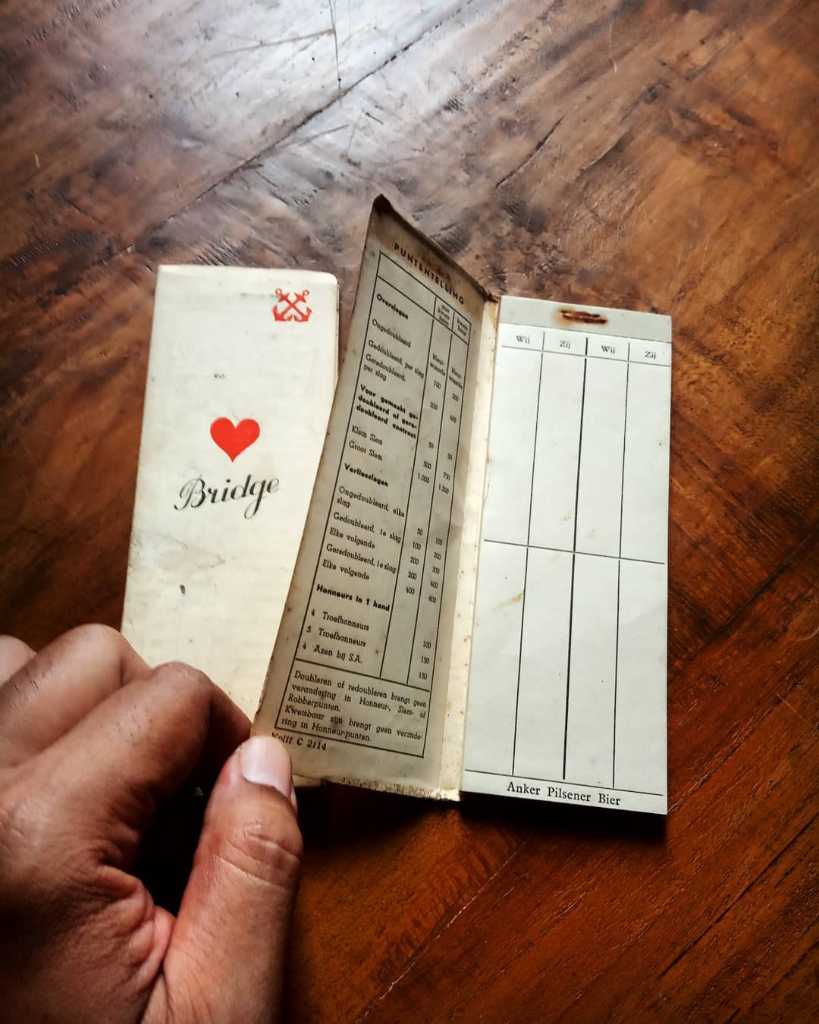 Bridge
PUNTENTELLING
Overslagen
Ongedoubleerd
Gedoubleerd, per slag
Geredoubleerd,
per slag
Voor gemaakt ge-
doubleerd of gere-
doubleerd contract
Klein Slem
Groot Slem
Verliesslagen
Ongedoubleerd, elke
slag
Gedoubleerd, 1e slag
Elke volgende
Geredoubleerd, 1e slag
Elke volgende
Honneurs in 1 hand
4 Troefhonneurs 100
5 Troefhonneurs 150
4 Azen bij S.A. 150
Doubleren of redoubleren brengt geen
verandering in Honneur-, Slem- of
Robberpunten.
Kwetsbaar zijn brengt geen verande-
ring in Honneurpunten.
Kolff C 2114
Wij Zij Wij Zij
Anker Pilsener Bier